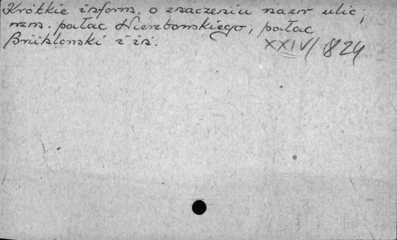 Krótkie inform. o znaczeniu nazw ulic;
m.in. pałac Nieszborskiego, pałac
Brühlowski i in.
XXIV/1824